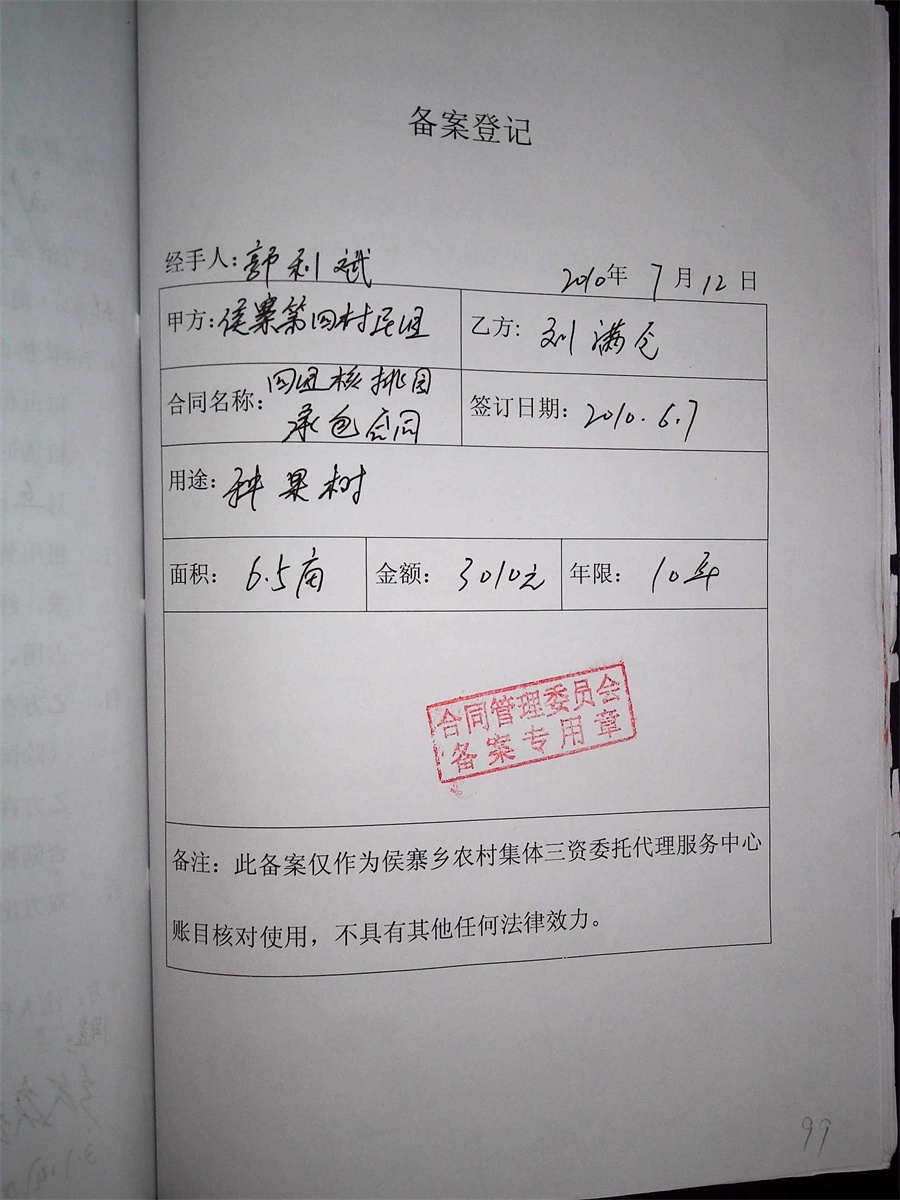 备案登记
经手人:郭利斌
2010年7月12日
甲方:侯寨第四村民组
乙方:刘满仓
合同名称:四组核桃园
承包合同
签订日期:2010.6.7
用途:种果树
面积:6.5亩
金额:3010元
年限:10年
合同管理委员会
备案专用章
备注:此备案仅作为侯寨乡农村集体三资委托代理服务中心
账目核对使用，不具有其他任何法律效力。
99